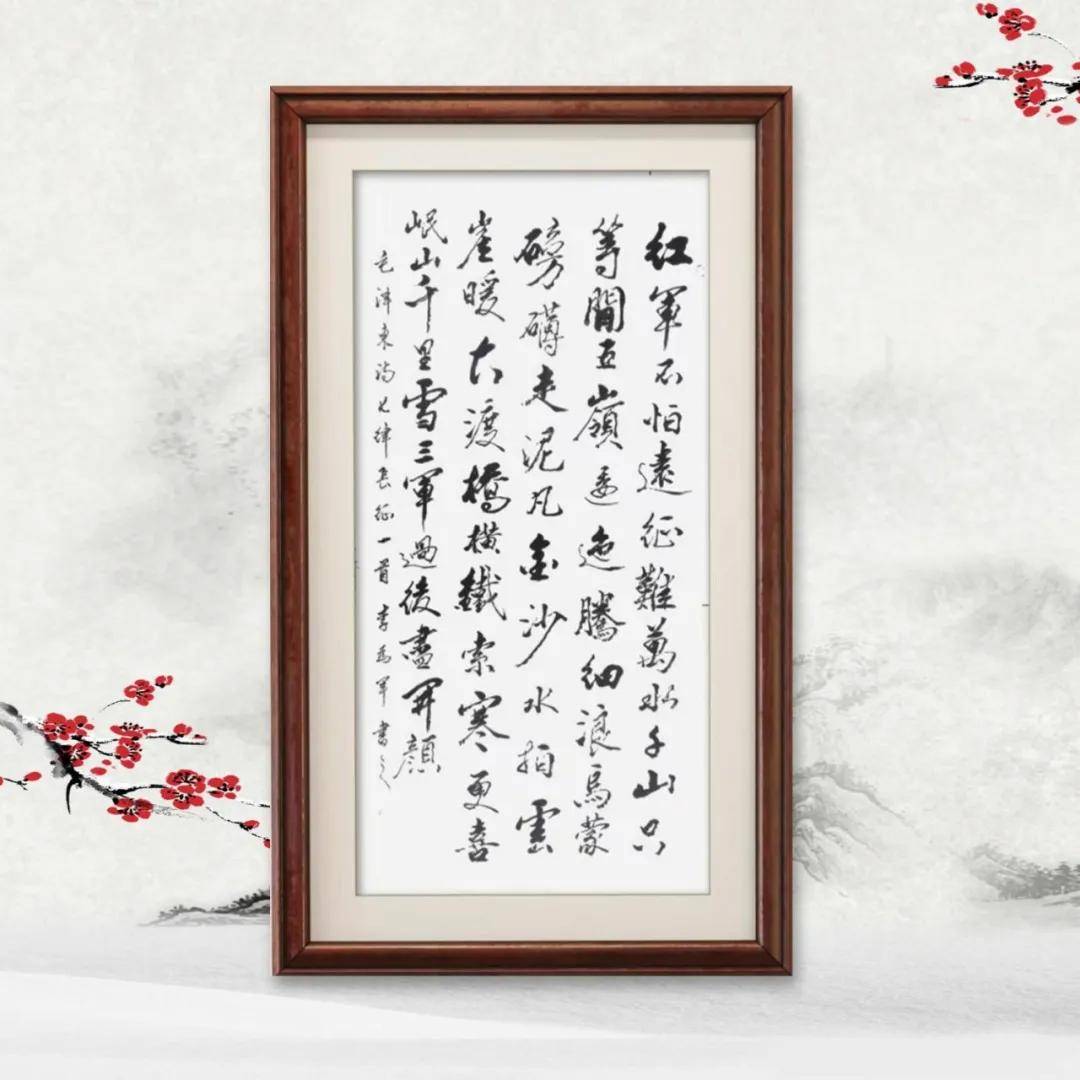 红軍不怕遠征難萬水千山只
等閒五嶺逶迤騰細浪烏蒙
磅礴走泥丸金沙水拍雲
崖暖大渡橋横鐵索寒更喜
岷山千里雪三軍過後盡開顏
毛泽東詩七律長征一首 李為军書之